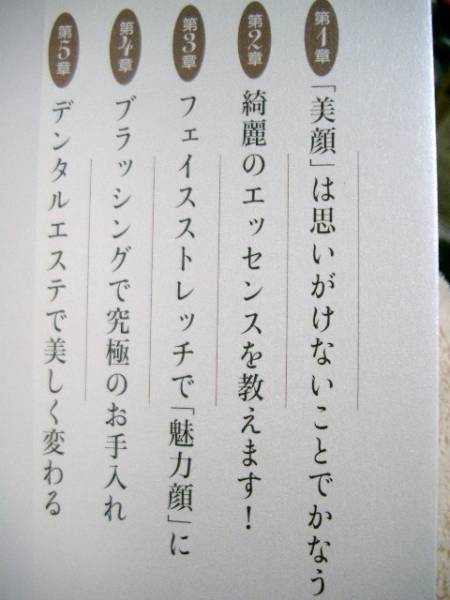 第1章 「美顔」は思いがけないことでかなう
第2章 綺麗のエッセンスを教えます!
第3章 フェイスストレッチで「魅力顔」に
第4章 ブラッシングで究極のお手入れ
第5章 デンタルエステで美しく変わる